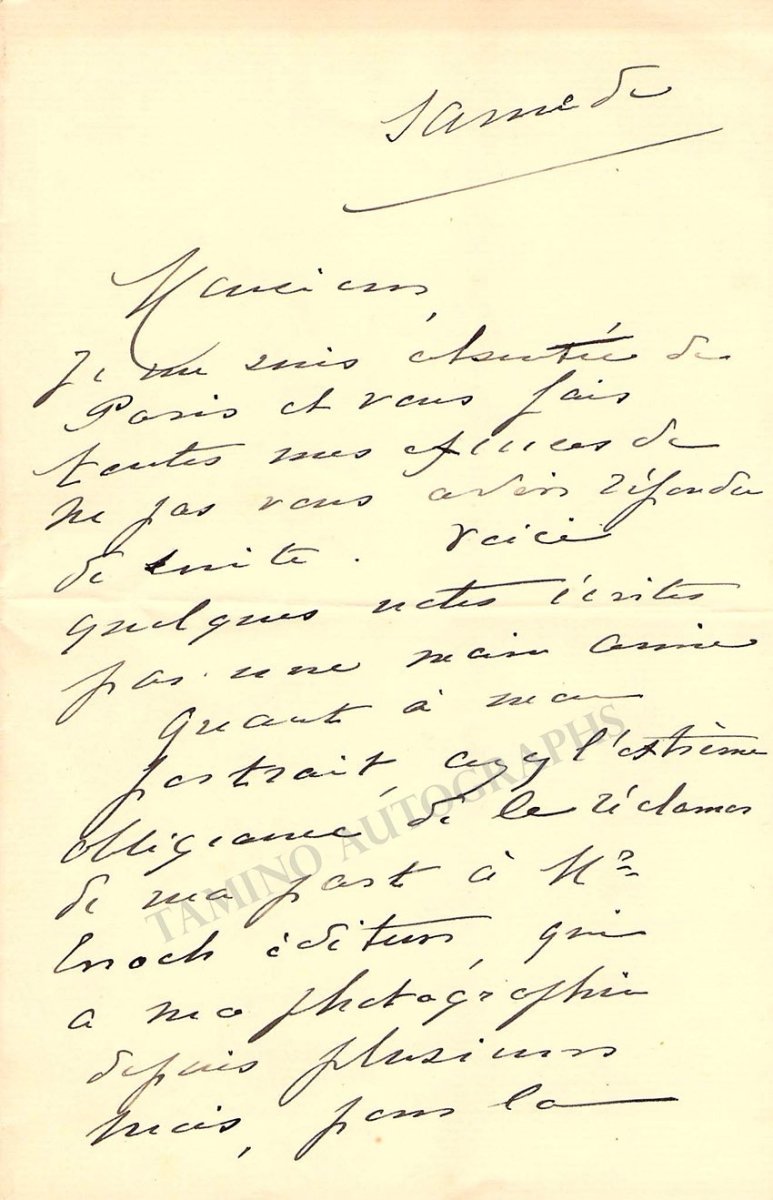 Samedi
Monsieur,
Je me suis absentée de
Paris et vous fais
toutes mes excuses de
ne pas vous avoir répondu
de suite. Voici
quelques notes écrites
par une main amie
Quant à mon
portrait, ayez l'extrème
obligeance de le réclamer
de ma part à Mr
Enoch éditeur, qui
a ma photographie
depuis plusieurs
mois, pour la
TAMINO AUTOGRAPHS